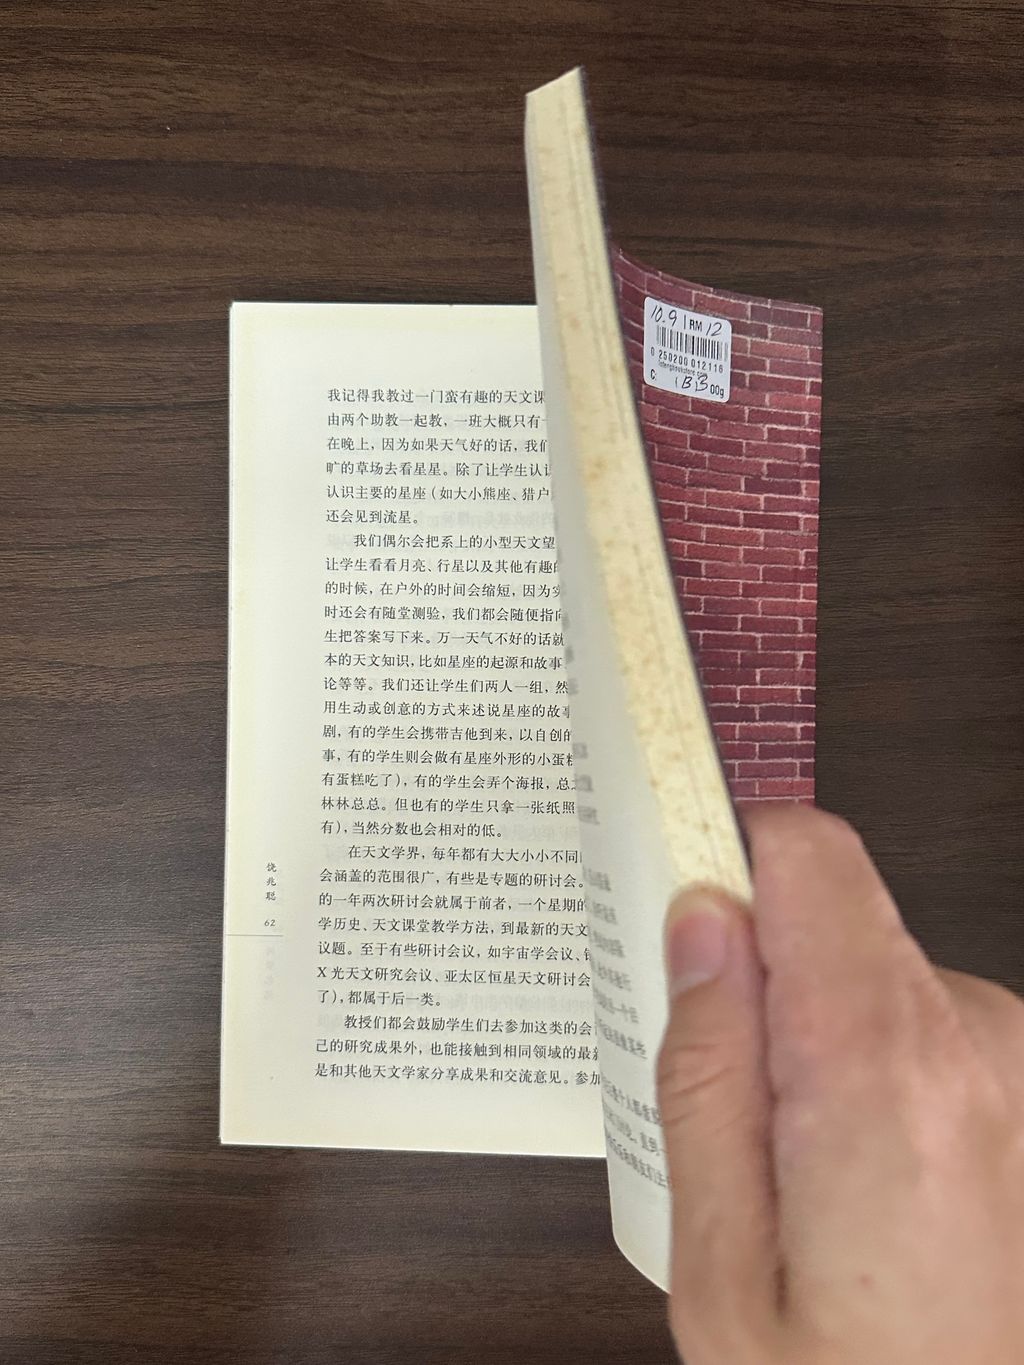 我记得我教过一门蛮有趣的天文课
由两个助教一起教，一班大概只有
在晚上，因为如果天气好的话，我们
旷的草场去看星星。除了让学生认
认识主要的星座（如大小熊座、猎户
还会见到流星。
我们偶尔会把系上的小型天文望
让学生看看月亮、行星以及其他有趣
的时候，在户外的时间会缩短，因为
时还会有随堂测验，我们都会随便指
生把答案写下来。万一天气不好的话就
本的天文知识，比如星座的起源和故事
论等等。我们还让学生们两人一组，然
用生动或创意的方式来述说星座的故事
剧，有的学生会携带吉他到来，以自创的
事，有的学生则会做有星座外形的小蛋糕
有蛋糕吃了），有的学生会弄个海报，总
林林总总。但也有的学生只拿一张纸照
有），当然分数也会相对的低。
在天文学界，每年都有大大小小不同
会涵盖的范围很广，有些是专题的研讨会。
的一年两次研讨会就属于前者，一个星期的
学历史、天文课堂教学方法，到最新的天文
议题。至于有些研讨会议，如宇宙学会议、
X光天文研究会议、亚太区恒星天文研讨会
了），都属于后一类。
教授们都会鼓励学生们去参加这类的会
己的研究成果外，也能接触到相同领域的最新
是和其他天文学家分享成果和交流意见。参加
饶兆聪
62
10.9 RM 12
0 250200 012116
C: (B)3 00g